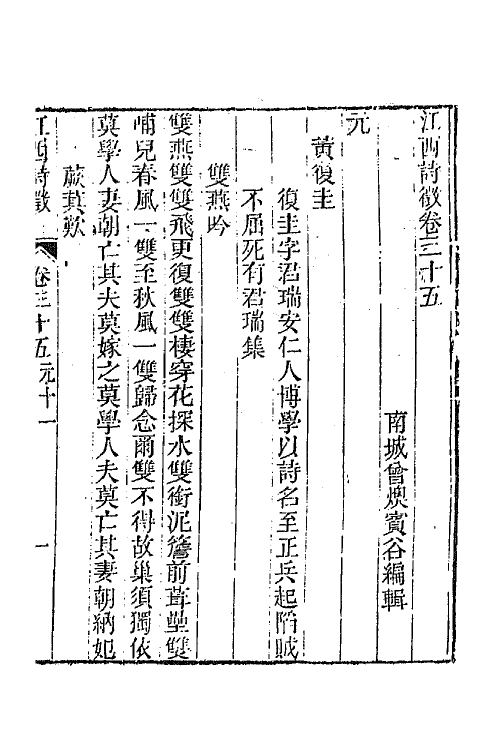 江西詩徵卷三十五
南城曾燠賓谷編輯
元
黃復圭
復圭字君瑞安仁人博學以詩名至正兵起陷賊
不屈死有君瑞集
雙燕吟
雙燕雙雙飛更復雙雙棲穿花探水雙銜泥簷前葺壘雙
哺兒春風一雙至秋風一雙歸念爾雙不得故巢須獨依
莫學人妻朝亡其夫莫嫁之莫學人夫莫亡其妻朝納妃
蕨萁歎
江西詩徵 卷三十五 元十一 一